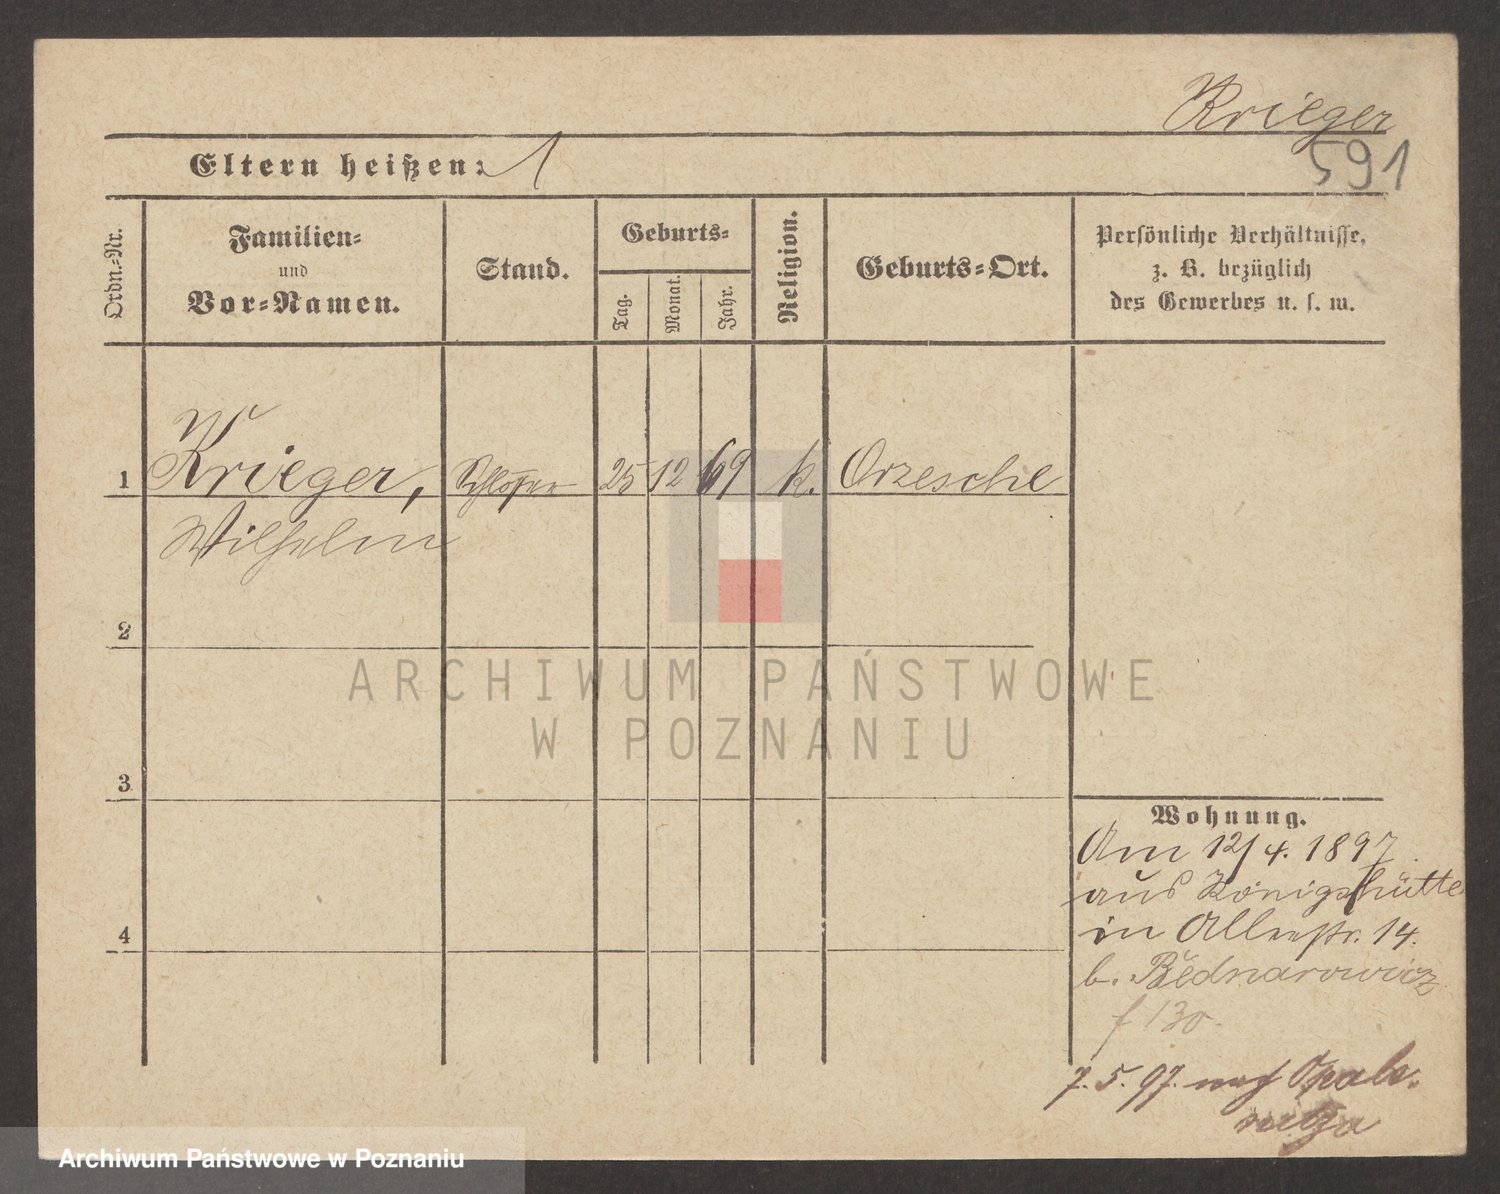 Krieger
591
Eltern heißen: 1
Ordn.=Nr.
Familien=
und
Vor=Namen.
Stand.
Geburts=
Tag.
Monat.
Jahr.
Religion.
Geburts=Ort.
Persönliche Verhältnisse,
z. B. bezüglich
des Gewerbes u. s. w.
1 Krieger, Schlosser 25 12 69 k. Orzesche
Wilhelm
2
3
4
ARCHIWUM PAŃSTWOWE
W POZNANIU
Wohnung.
Am 12/4. 1897.
aus Königshütte
in Allerstr. 14.
b. Bednarowicz
f 130.
7. 5. 97. nach Opale-
nitza
Archiwum Państwowe w Poznaniu